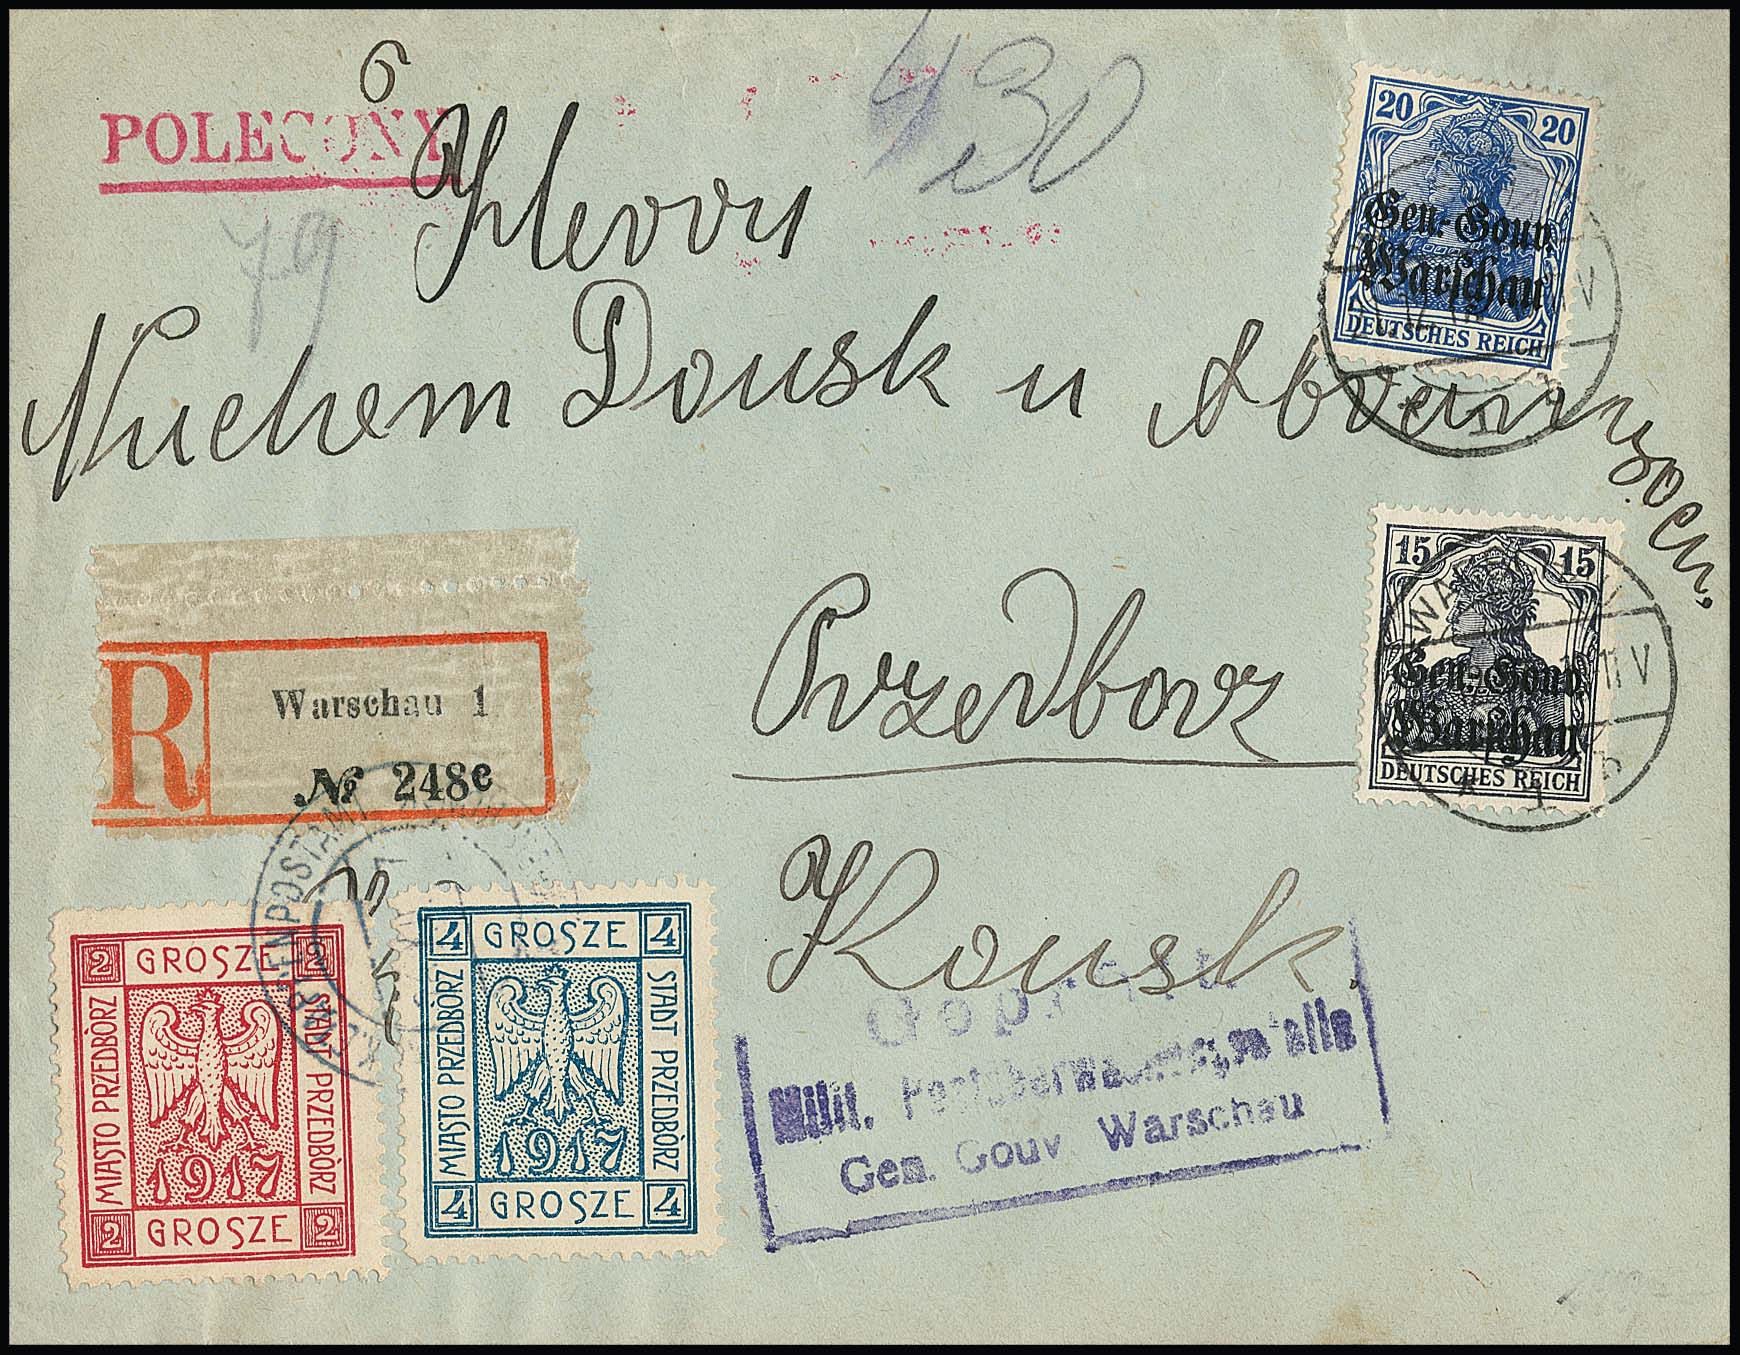 6
POLECONY
430
79
Herrn
Nuchem Donsk u
Przedborz
Konsk.
20 20
Gen.-Gouv.
Warschau
DEUTSCHES REICH
15 15
Gen.-Gouv.
Warschau
DEUTSCHES REICH
R
Warschau 1
№ 248c
2 GROSZE 2
MIASTO PRZEDBÒRZ
STADT PRZEDBÒRZ
1917
2 GROSZE 2
4 GROSZE 4
MIASTO PRZEDBÒRZ
STADT PRZEDBÒRZ
1917
4 GROSZE 4
Geprüft
Milit. Postüberwachungsstelle
Gen. Gouv Warschau